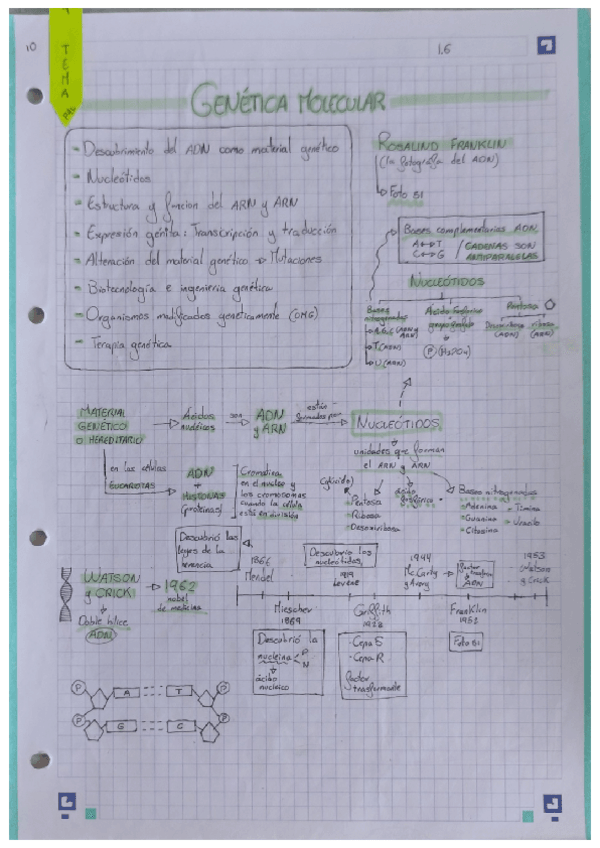 10
TEMA
1.6
GENÉTICA MOLECULAR
- Descubrimiento del ADN como material genético
- Nucleótidos
- Estructura y función del ARN y ARN
- Expresión génita: Transcripción y traducción
- Alteración del material genético → Mutaciones
- Biotecnología e ingeniería genética
- Organismos modificados genéticamente (OMG)
- Terapia genética
ROSALIND FRANKLIN
(la fotógrafa del ADN)
Foto 51
Bases complementarias ADN
A↔T
C↔G
/ CADENAS SON
ANTIPARALELAS
NUCLEÓTIDOS
Bases
nitrogenadas
A,G,C (ADN y
ARN)
T (ADN)
U (ARN)
Ácido fosfórico
grupo fosfato
P (H3PO4)
Pentosa
Desoxirribosa
(ADN)
ribosa
(ARN)
MATERIAL
GENÉTICO
O HEREDITARIO
Ácidos
nucléicos
son
ADN
y ARN
están
formados por
NUCLEÓTIDOS
unidades que forman
el ARN y ARN
en las células
EUCARIOTAS
ADN
+
HISTONAS
(proteínas)
Cromatina
en el núcleo y
los cromosomas
cuando la célula
está en división
(glúcido)
Pentosa
- Ribosa
- Desoxirribosa
ácido
fosfórico
Bases nitrogenadas
Adenina
- Timina
Guanina
- Uracilo
Citosina
Descubrió las
leyes de la
herencia
1866
Mendel
Descubrió los
nucleótidos
1919
Levene
1944
McCarty
y Avery
factor
transformante
ADN
1953
Watson
y Crick
WATSON
y CRICK
1962
nobel
de medicina
Doble hélice
ADN
Miescher
1869
Griffith
1928
Franklin
1952
Descubrió la
nucleína
P
N
ácido
nucleico
- Cepa S
- Cepa R
factor
trasformante
Foto 51
P
A
T
P
P
G
C
P